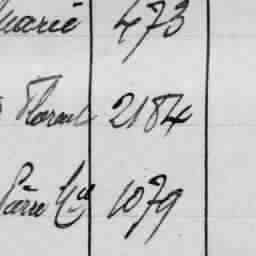 Marie 473
Florent 2184
Pierre 1079